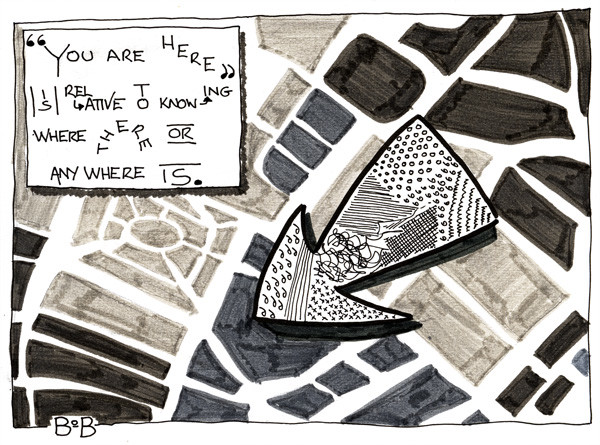 "YOU ARE HERE"
IS RELATIVE TO KNOWING
WHERE THERE OR
ANYWHERE IS.
BOB